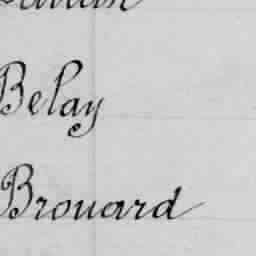 Belay
Brouard